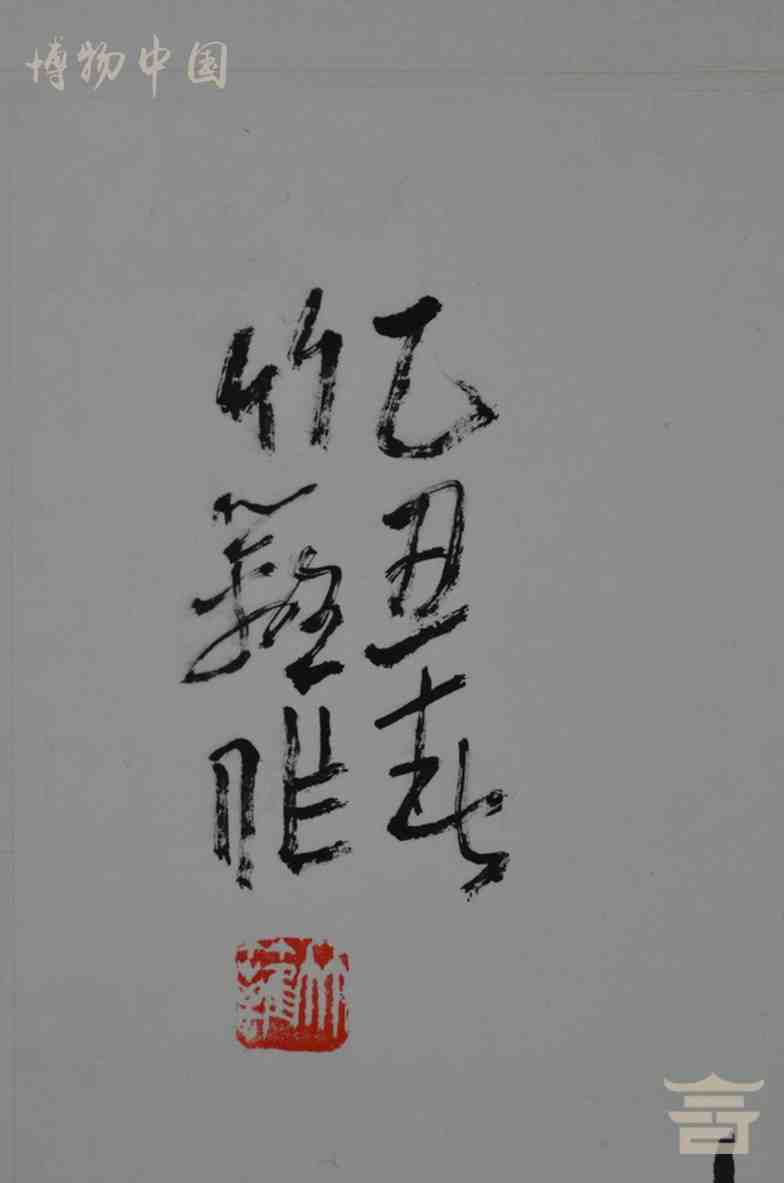 博物中国
乙丑春
竹
作
竹